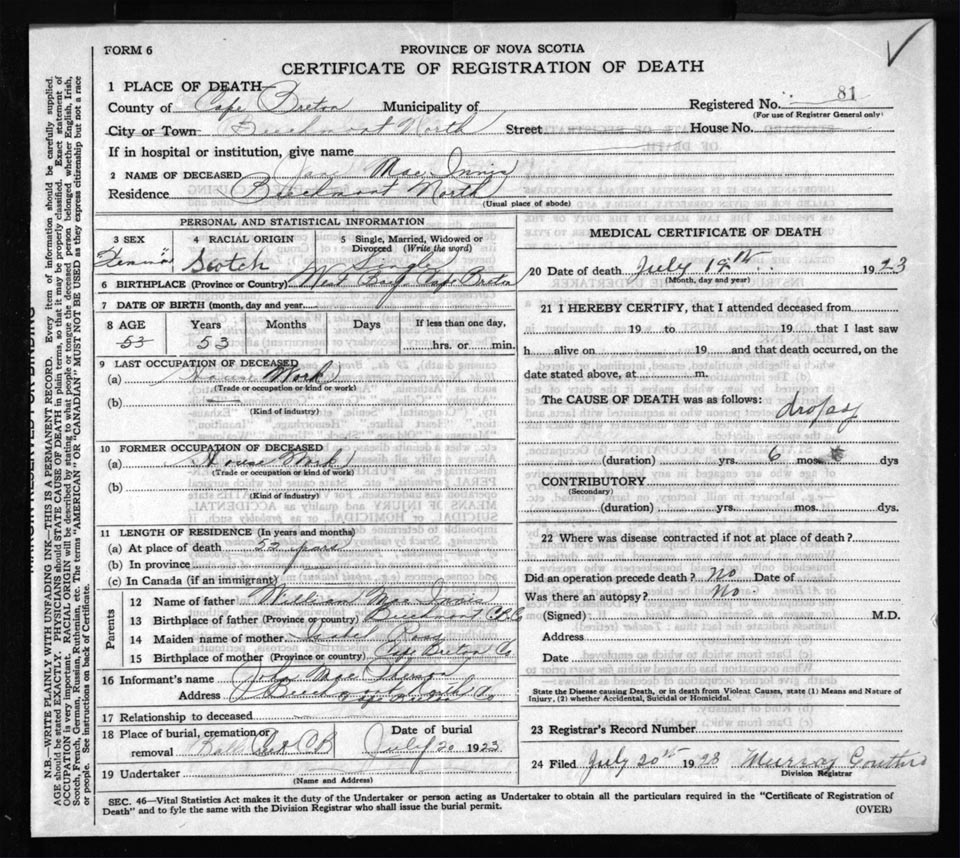 FORM 6
PROVINCE OF NOVA SCOTIA
CERTIFICATE OF REGISTRATION OF DEATH
1 PLACE OF DEATH
County of Cape Breton Municipality of Registered No. 81
(For use of Registrar General only)
City or Town Beechmont North Street House No.
If in hospital or institution, give name
2 NAME OF DECEASED Mac Innis
Residence Beechmont North
(Usual place of abode)
PERSONAL AND STATISTICAL INFORMATION
3 SEX 4 RACIAL ORIGIN 5 Single, Married, Widowed or Divorced (Write the word)
Scotch Single
6 BIRTHPLACE (Province or Country) West Cape Breton
7 DATE OF BIRTH (month, day and year)
8 AGE Years Months Days If less than one day,
53 53 hrs. or min.
9 LAST OCCUPATION OF DECEASED
(a) House Work
(Trade or occupation or kind or work)
(b)
(Kind of industry)
10 FORMER OCCUPATION OF DECEASED
(a) House Work
(Trade or occupation or kind of work)
(b)
(Kind of industry)
11 LENGTH OF RESIDENCE (In years and months)
(a) At place of death 53 years
(b) In province
(c) In Canada (if an immigrant)
Parents
12 Name of father William Mac Innis
13 Birthplace of father (Province or country) Beechmont C.B.Co
14 Maiden name of mother Isabel Ross
15 Birthplace of mother (Province or country) Cape Breton Co
16 Informant's name John Mac Pherson
Address Beechmont North
Cape Breton Co
17 Relationship to deceased
18 Place of burial, cremation or removal Date of burial
C B July 20 1923
19 Undertaker
(Name and Address)
MEDICAL CERTIFICATE OF DEATH
20 Date of death July 19th 1923
(Month, day and year)
21 I HEREBY CERTIFY, that I attended deceased from
19 to 19 that I last saw
h alive on 19 and that death occurred, on the
date stated above, at m.
The CAUSE OF DEATH was as follows:
dropsy
(duration) yrs. 6 mos. dys
CONTRIBUTORY
(Secondary)
(duration) yrs. mos. dys.
22 Where was disease contracted if not at place of death?
Did an operation precede death? No Date of
Was there an autopsy? No
(Signed) M.D.
Address
Date
State the Disease causing Death, or in death from Violent Causes, state (1) Means and Nature of
Injury, (2) whether Accidental, Suicidal or Homicidal.
23 Registrar's Record Number
24 Filed July 20th 1923 Murray
Division Registrar
SEC. 46—Vital Statistics Act makes it the duty of the Undertaker or person acting as Undertaker to obtain all the particulars required in the "Certificate of Registration of
Death" and to fyle the same with the Division Registrar who shall issue the burial permit.
(OVER)
MARGIN RESERVED FOR BINDING
N.B.—WRITE PLAINLY WITH UNFADING INK—THIS IS A PERMANENT RECORD. Every item of information should be carefully supplied.
AGE should be stated EXACTLY. PHYSICIANS should STATE CAUSE OF DEATH in plain terms, so that it may be properly classified. Exact statement of
OCCUPATION is very important. RACIAL ORIGIN will be described by stating to what people or tongue the deceased person belonged, whether English, Irish,
Scotch, French, German, Russian, Ruthenian, etc. The terms "AMERICAN" OR "CANADIAN" MUST NOT BE USED as they express citizenship but not a race
or people. See instructions on back of Certificate.